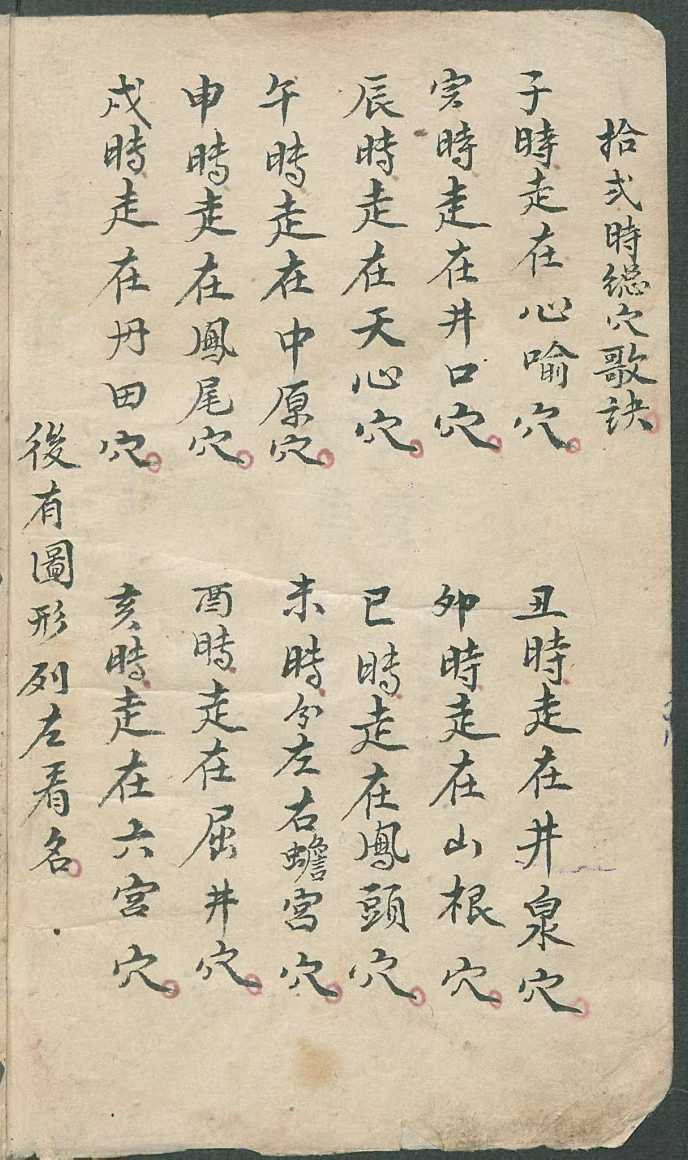 拾弍時總穴歌訣。
子時走在心喻穴。丑時走在井泉穴。
寅時走在井口穴。卯時走在山根穴。
辰時走在天心穴。巳時走在鳳頭穴。
午時走在中原穴。未時分左右蟾宮穴。
申時走在鳳尾穴。酉時走在屈井穴。
戌時走在丹田穴。亥時走在六宮穴。
後有圖形列左看名。